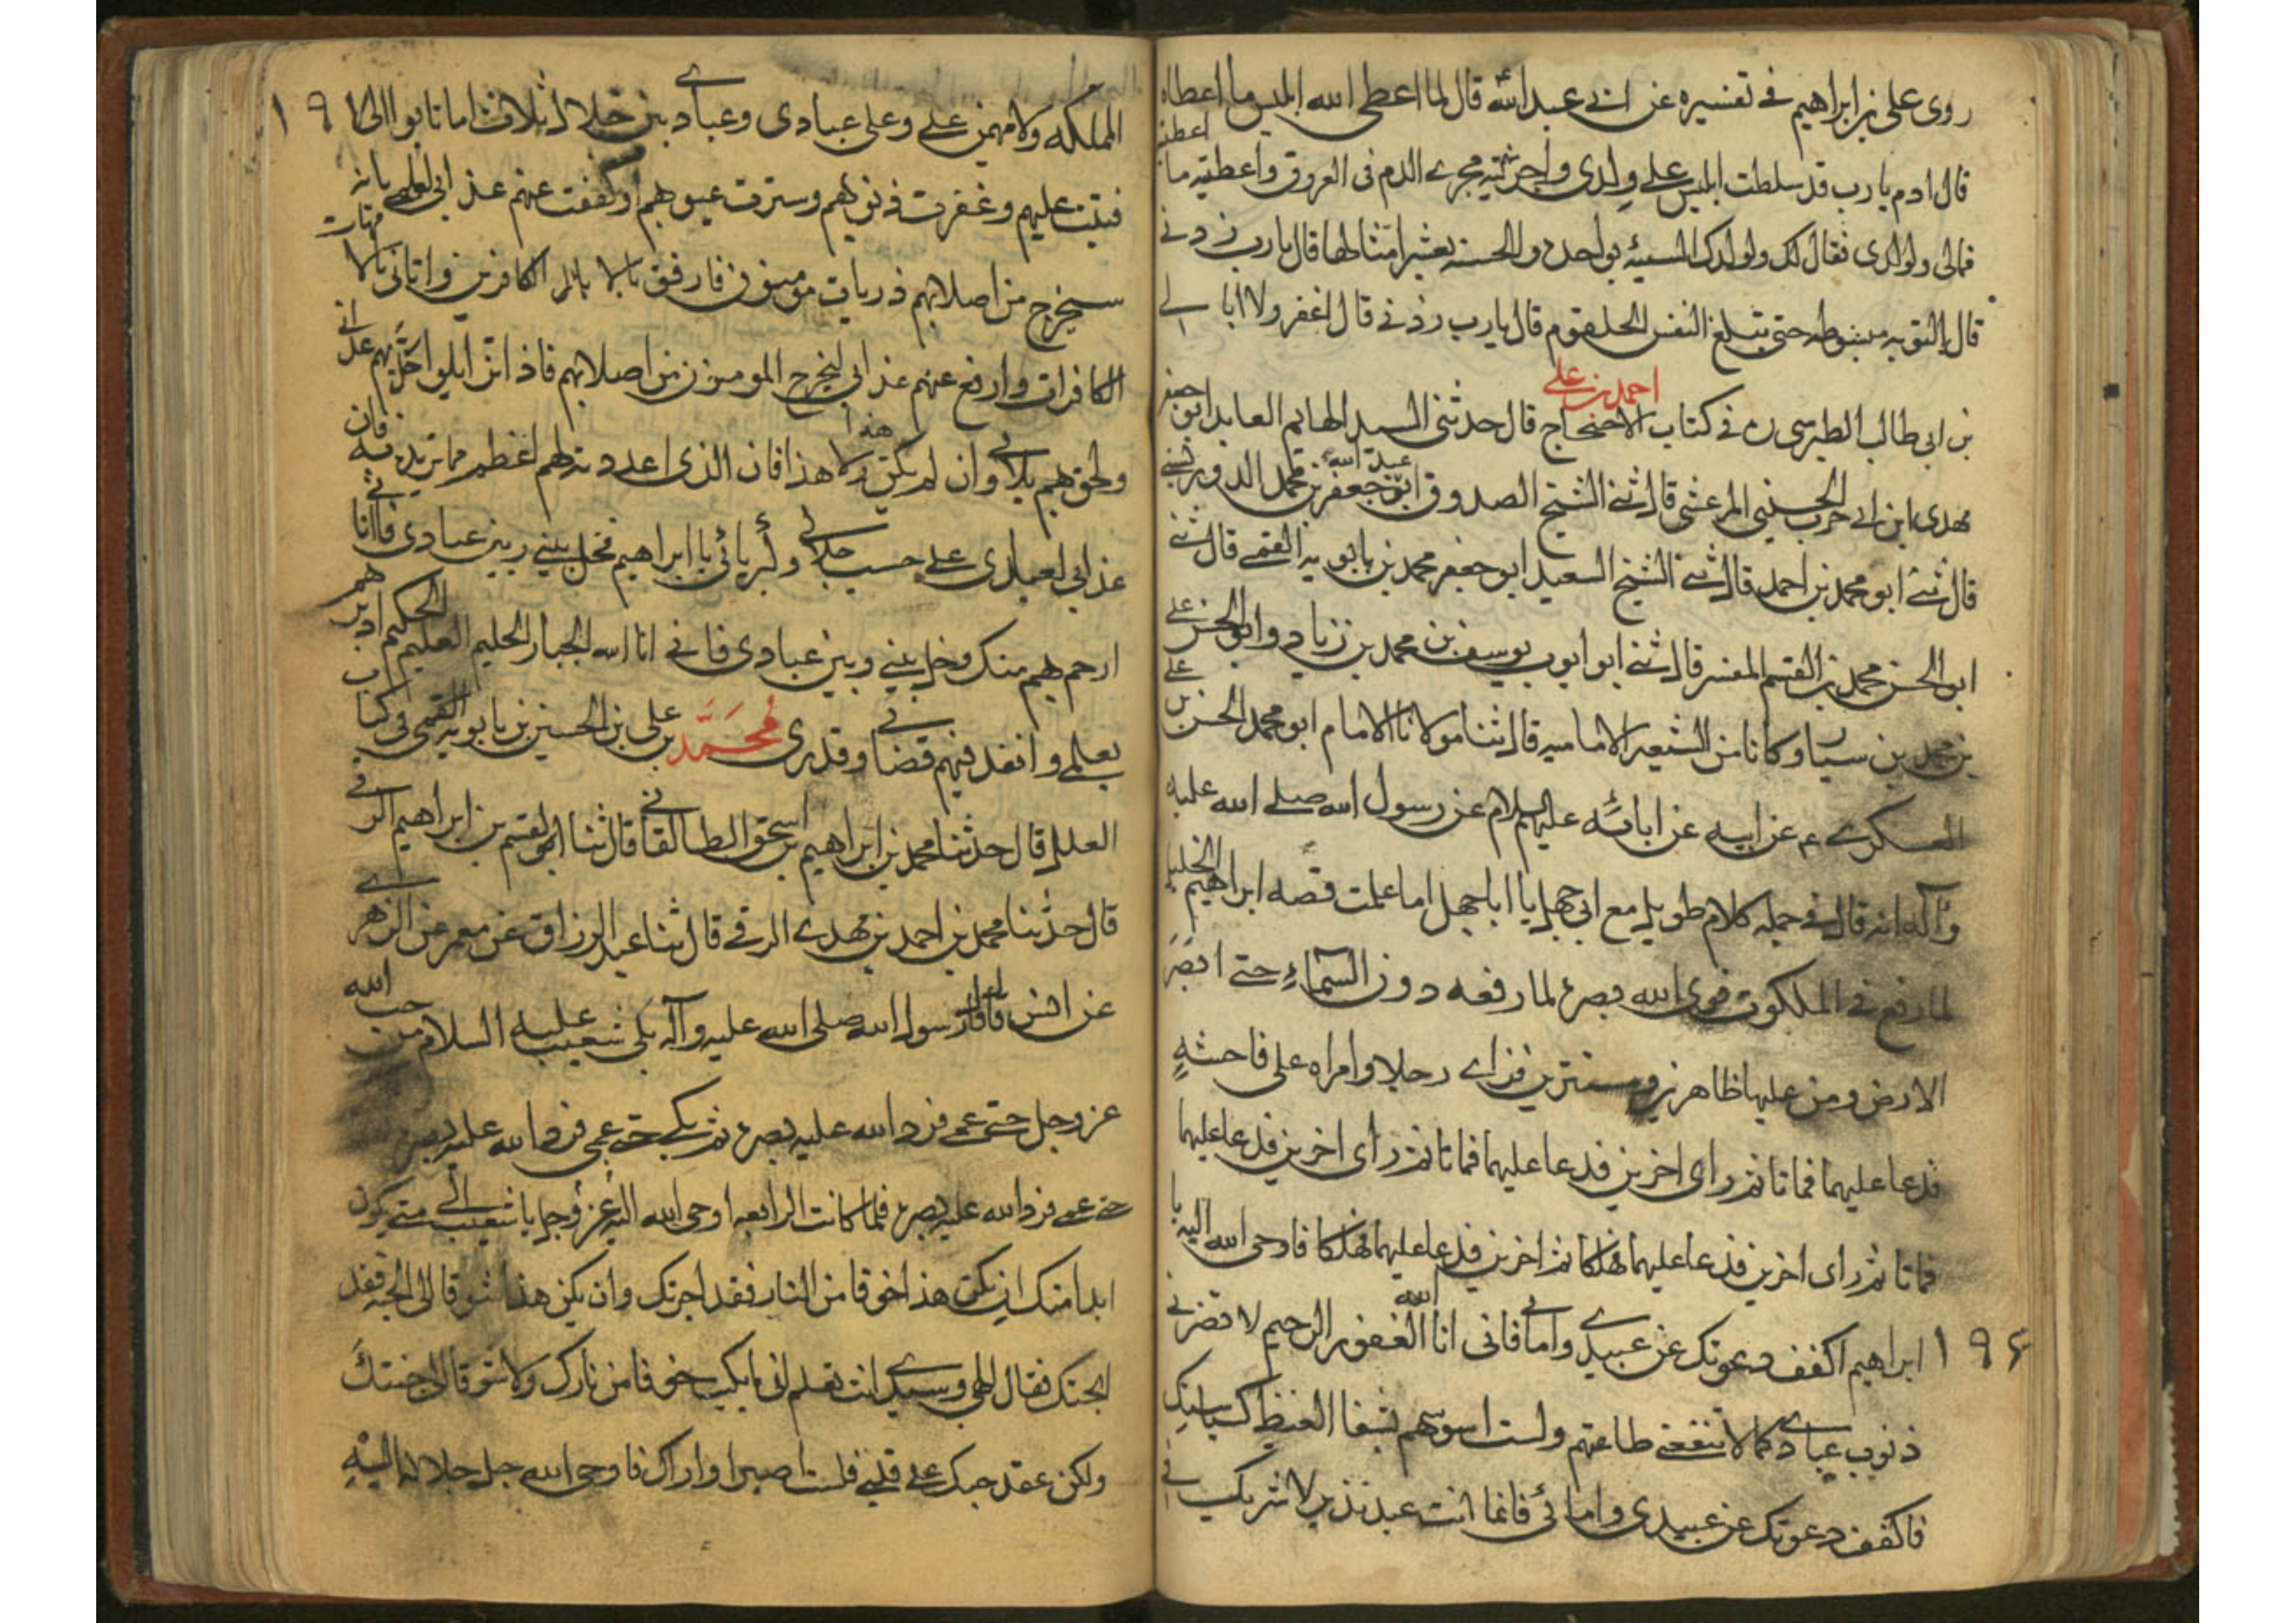 روى على بن ابراهيم فى تفسيره عن ابى عبد الله قال لما اعطى الله ابليس ما اعطاه
قال ادم يا رب قد سلطت ابليس على ولدى واجريته مجرى الدم فى العروق واعطيته ما اعطيته
فمالى ولولدى فقال لك ولولدك السيئه بواحده والحسنه بعشر امثالها قال يا رب زدنى
قال التوبه مبسوطه حتى تبلغ النفس الحلقوم قال يا رب زدنى قال اغفر ولا ابالى
احمد بن على
بن ابى طالب الطبرسى ره فى كتاب الاحتجاج قال حدثنى السيد العالم العابد ابو جعفر
مهدى ابن ابى حرب الحسينى المرعشى قال ثنى الشيخ الصدوق ابو عبد الله جعفر بن محمد الدوريستى
قال ثنى ابو محمد بن احمد قال ثنى الشيخ السعيد ابو جعفر محمد بن بابويه القمى قال ثنى
ابو الحسن محمد بن القسم المفسر قال ثنى ابو ايوب يوسف بن محمد بن زياد وابو الحسن على
بن محمد بن سيار وكانا من الشيعه الاماميه قال ثنا مولانا الامام ابو محمد الحسن بن على
العسكرى ع عن ابيه عن ابائه عليهم السلام عن رسول الله صلى الله عليه
وآله انه قال فى جمله كلام طويل مع ابى جهل يا ابا جهل اما علمت قصه ابراهيم الخليل
لما رفع فى الملكوت قوى الله بصره لما رفعه دون السماء حتى ابصر
الارض ومن عليها ظاهرين ومستترين فراى رجلا وامراه على فاحشهٍ
فدعا عليهما فماتا ثم راى اخرين فدعا عليهما فماتا ثم راى اخرين فدعا عليهما
فماتا ثم راى اخرين فدعا عليهما فهلكا ثم اخرين فدعا عليهما فهلكا فاوحى الله اليه يا
١٩٤ ابراهيم اكفف دعوتك عن عبيدى وامائى فانى انا الله الغفور الرحيم لا تضرنى
ذنوب عبادى كما لا تنفعنى طاعتهم ولست اسوسهم بشفا الغيظ كسياستك
فاكفف دعوتك عن عبيدى وامائى فانما انت عبد نذير لا شريك فى
المملكه ولا مهيمن على وعلى عبادى وعبادى بين خلال ثلاث اما تابوا الى ١٩
فتبت عليهم وغفرت ذنوبهم وسترت عيوبهم او كففت عنهم عذابى لعلمى بانه
سيخرج من اصلابهم ذريات مومنون فارفق بالابا الكافرين واتانى بالامهات
الكافرات وارفع عنهم عذابى ليخرج المومنون من اصلابهم فاذا تزايلوا حل بهم عذابى
ولحق بهم بلائى وان لم يكن هذا ولا هذا فان الذى اعددته لهم اعظم مما تريد به فان
عذابى لعبادى على حسب جلالى وكبريائى يا ابراهيم فخل بينى وبين عبادى فانا
ارحم بهم منك وخل بينى وبين عبادى فانى انا الله الجبار الحليم العليم الحكيم ادبرهم
بعلمى وانفذ فيهم قضائى وقدرى مُحَمَّد بن على بن الحسين بن بابويه القمى فى كتاب
العلل قال حدثنا محمد بن ابراهيم بن اسحق الطالقانى قال ثنا ابو القسم بن ابراهيم
قال حدثنا محمد بن احمد بن مهدى الرقى قال ثنا عبد الرزاق عن معمر عن الزهرى
عن انس قال قال رسول الله صلى الله عليه وآله بكى شعيب عليه السلام من حب الله
عز وجل حتى عمى فرد الله عليه بصره ثم بكى حتى عمى فرد الله عليه بصره
حتى عمى فرد الله عليه بصره فلما كانت الرابعه اوحى الله اليه عز وجل يا شعيب الى متى يكون
ابدا منك ان يكن هذا خوفا من النار فقد اجرتك وان يكن هذا شوقا الى الجنه فقد
ابحتك فقال الهى وسيدى انت تعلم انى ما بكيت خوفا من نارك ولا شوقا الى جنتك
ولكن عقد حبك على قلبى فلست اصبر او اراك فاوحى الله جل جلاله اليه